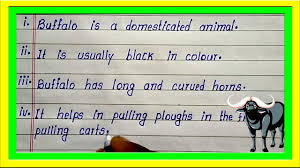 i. Buffalo is a domesticated animal.
ii. It is usually black in colour.
iii. Buffalo has long and curved horns.
iv. It helps in pulling ploughs in the
pulling carts.